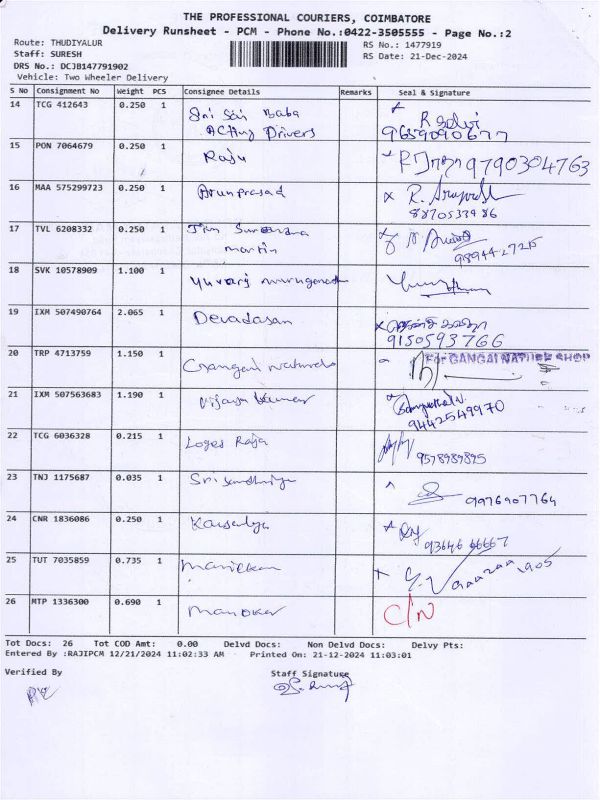 THE PROFESSIONAL COURIERS, COIMBATORE
Delivery Runsheet - PCM - Phone No.:0422-3505555 - Page No.:2
Route: THUDIYALUR RS No.: 1477919
Staff: SURESH RS Date: 21-Dec-2024
DRS No.: DCJB147791902
Vehicle: Two Wheeler Delivery
S No Consignment No Weight PCS Consignee Details Remarks Seal & Signature
14 TCG 412643 0.250 1 Sri Sai Baba
Acting Drivers R Selvi
9659090677
15 PON 7064679 0.250 1 Raju 9790304763
16 MAA 575299723 0.250 1 Arunprasad
17 TVL 6208332 0.250 1 Jim
martin
18 SVK 10578909 1.100 1 Yuvaraj
19 IXM 507490764 2.065 1 Devadasan
9150593766
20 TRP 4713759 1.150 1 Gangani naturals For GANGAI NATURE SHOP
21 IXM 507563683 1.190 1 Vijaya Kumar
9442549970
22 TCG 6036328 0.215 1 Loges Raja 9578989895
23 TNJ 1175687 0.035 1 9976907764
24 CNR 1836086 0.250 1 Kausalya 93646 66667
25 TUT 7035859 0.735 1
26 MTP 1336300 0.690 1 Manokar C/N
Tot Docs: 26 Tot COD Amt: 0.00 Delvd Docs: Non Delvd Docs: Delvy Pts:
Entered By :RAJIPCM 12/21/2024 11:02:33 AM Printed On: 21-12-2024 11:03:01
Verified By Staff Signature